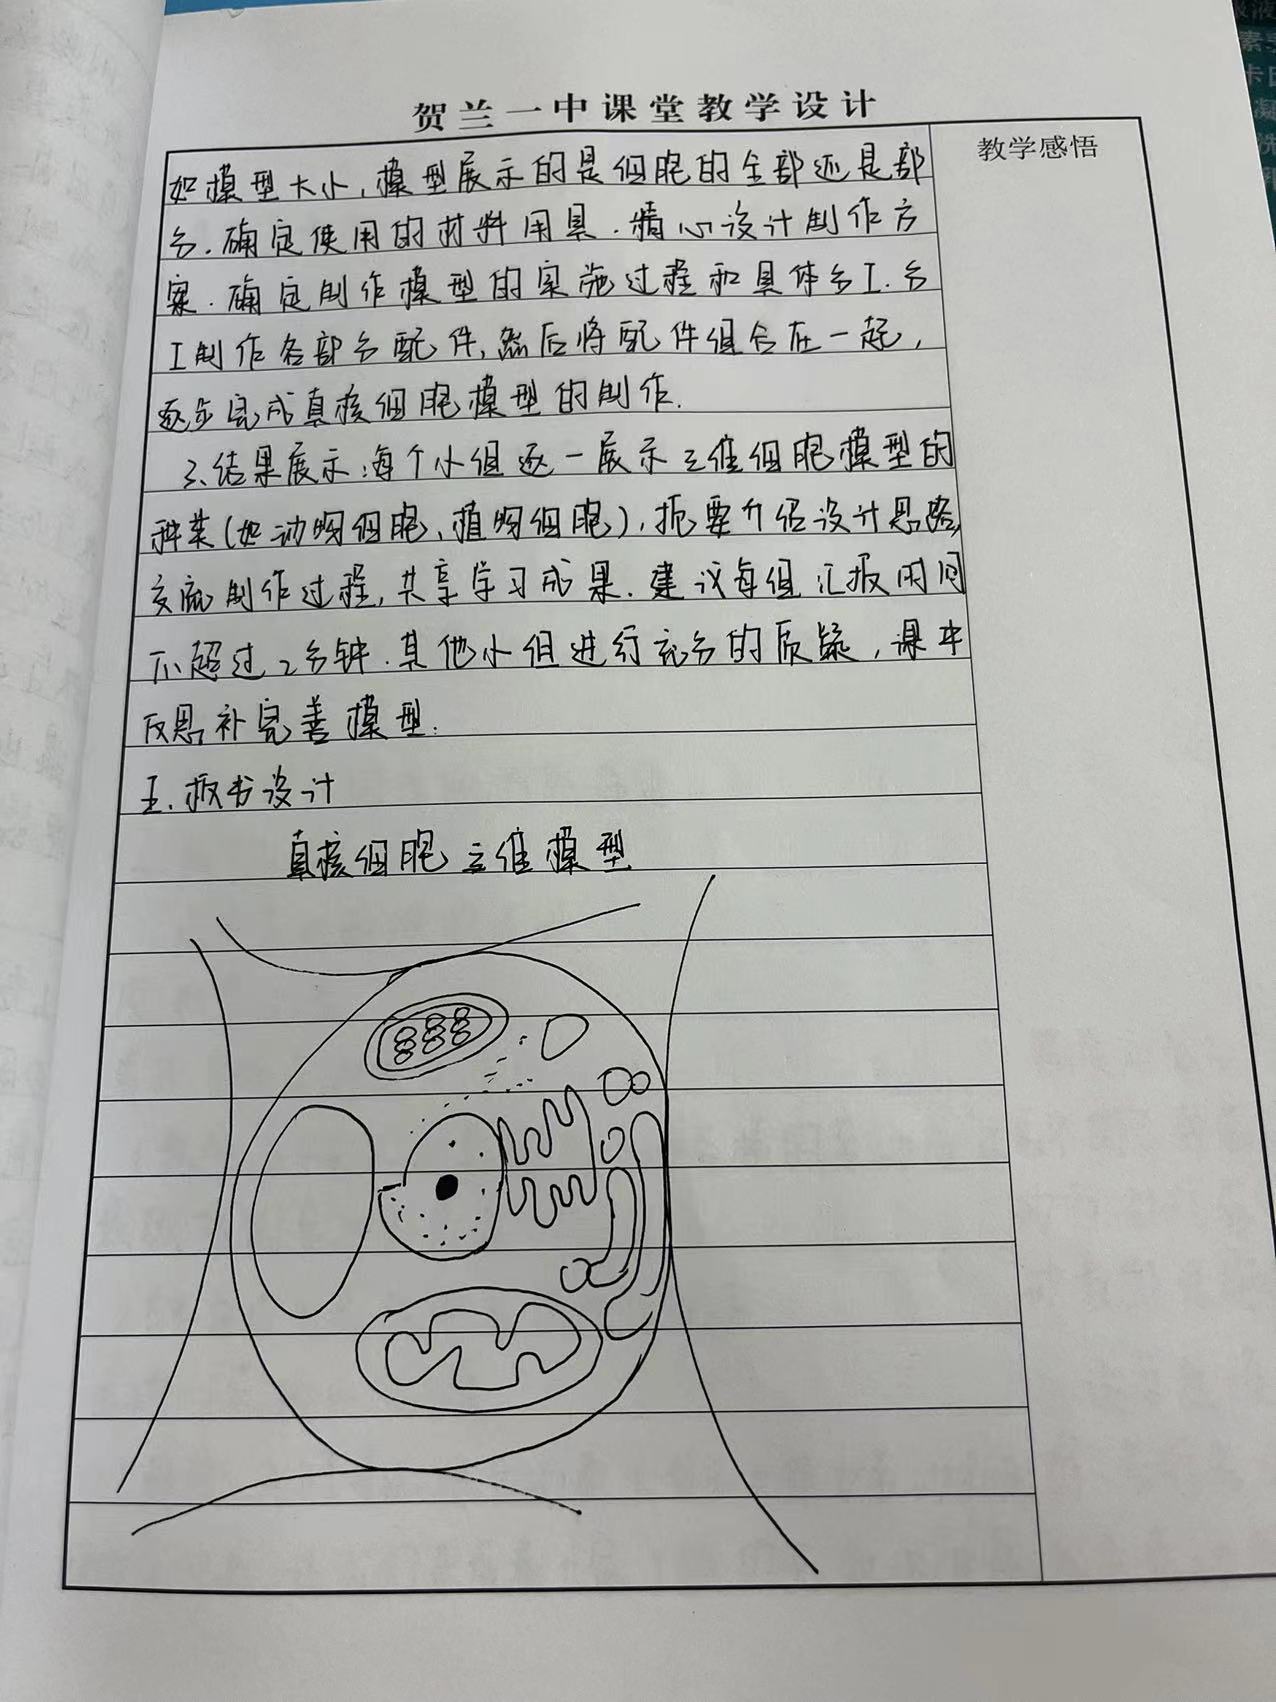 贺兰一中课堂教学设计
教学感悟
如模型大小,模型展示的是细胞的全部还是部
分.确定使用的材料用具.精心设计制作方
案.确定制作模型的实施过程和具体分工.分
工制作各部分配件,然后将配件组合在一起,
逐步完成真核细胞模型的制作.
3.结果展示:每个小组逐一展示三维细胞模型的
种类(如动物细胞、植物细胞),扼要介绍设计思路,
交流制作过程,共享学习成果.建议每组汇报时间
不超过2分钟.其他小组进行充分的质疑,课中
反思补完善模型.
五.板书设计
真核细胞三维模型